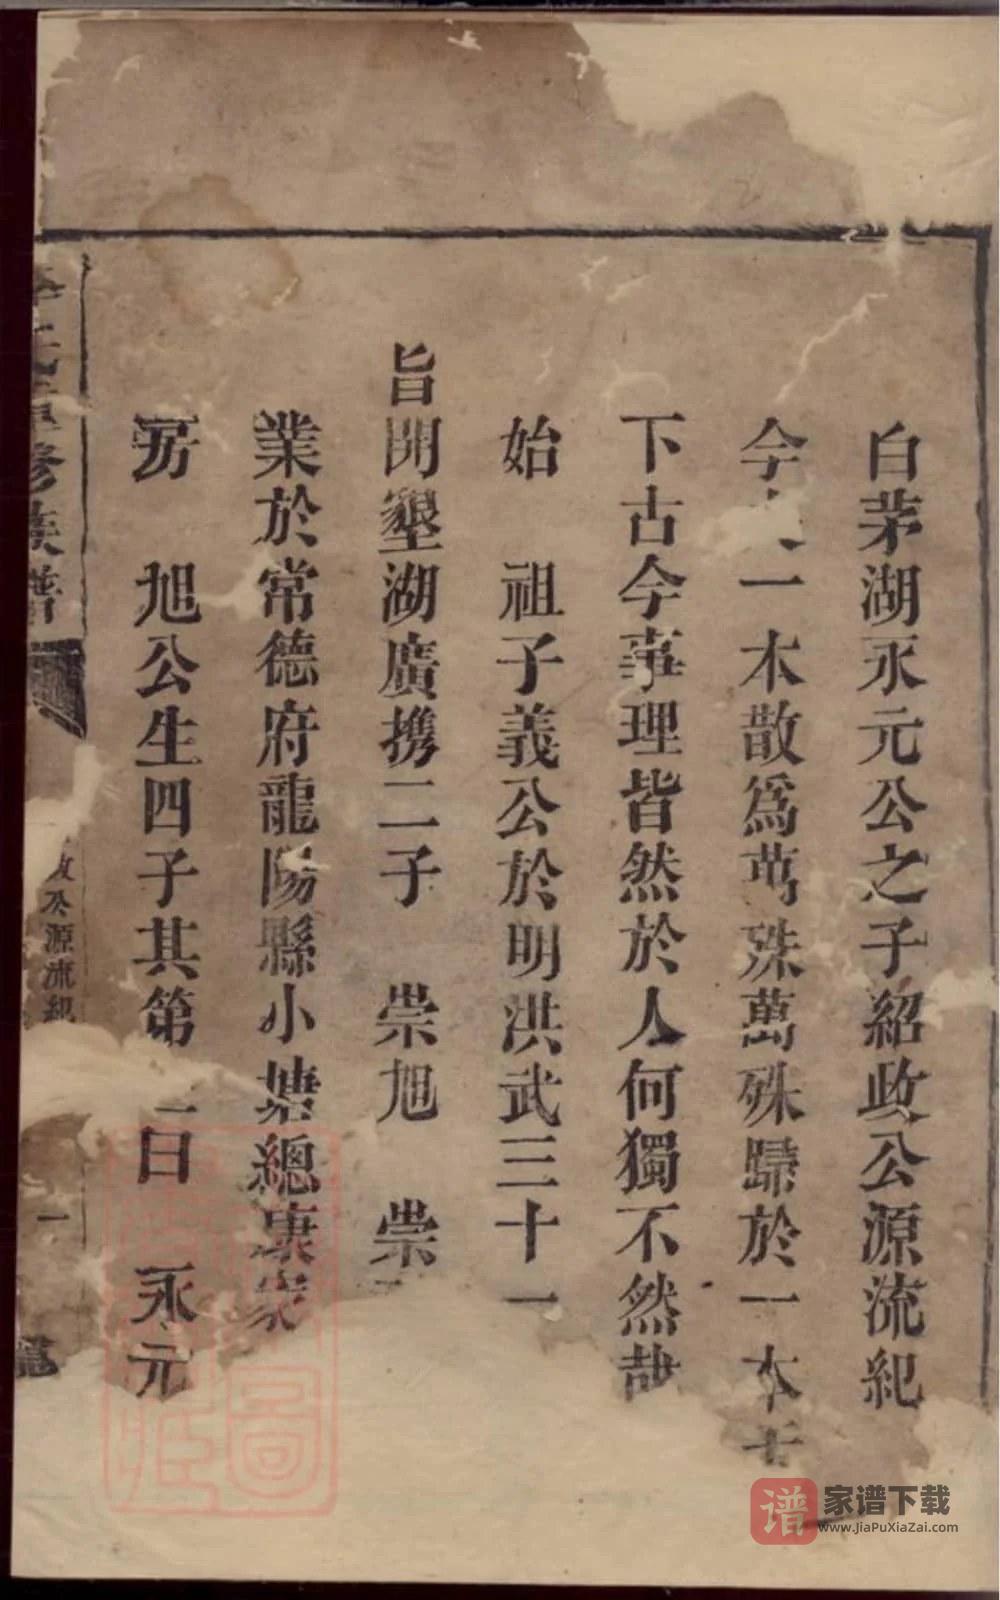 白茅湖永元公之子紹政公源流紀
今 一本散爲萬殊萬殊歸於一本天
下古今事理皆然於人何獨不然哉
始 祖子義公於明洪武三十一
旨開墾湖廣攜二子 崇旭 崇
業於常德府龍陽縣小塘總康家
房 旭公生四子其第 曰 永元
氏重修族譜
政公源流紀
一
譜 家谱下载
www.JiaPuXiaZai.com